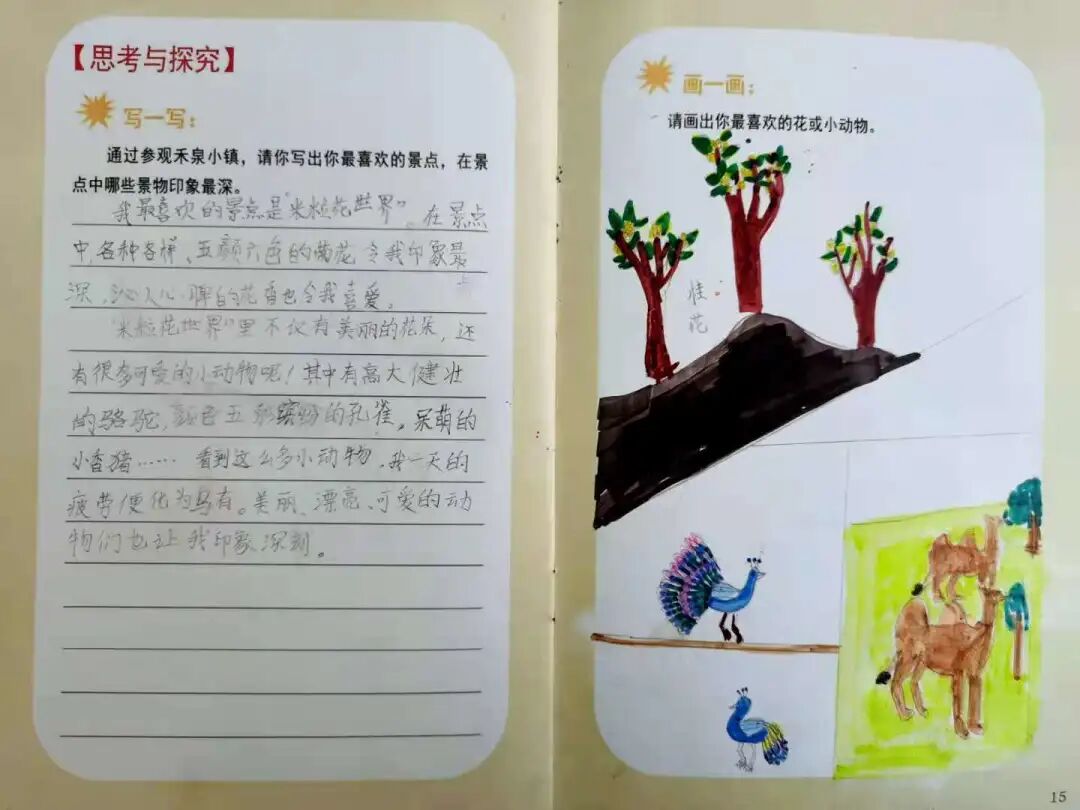 【思考与探究】
写一写：
通过参观禾泉小镇，请你写出你最喜欢的景点，在景
点中哪些景物印象最深。
我最喜欢的景点是“米粒花世界”。在景点
中，各种各样、五颜六色的菊花令我印象最
深，沁人心脾的花香也令我喜爱。
“米粒花世界”里不仅有美丽的花朵，还
有很多可爱的小动物呢！其中有高大健壮
的骆驼，五彩缤纷的孔雀，呆萌的
小香猪……看到这么多小动物，我一天的
疲劳便化为乌有。美丽、漂亮、可爱的动
物们也让我印象深刻。
画一画：
请画出你最喜欢的花或小动物。
桂花
15